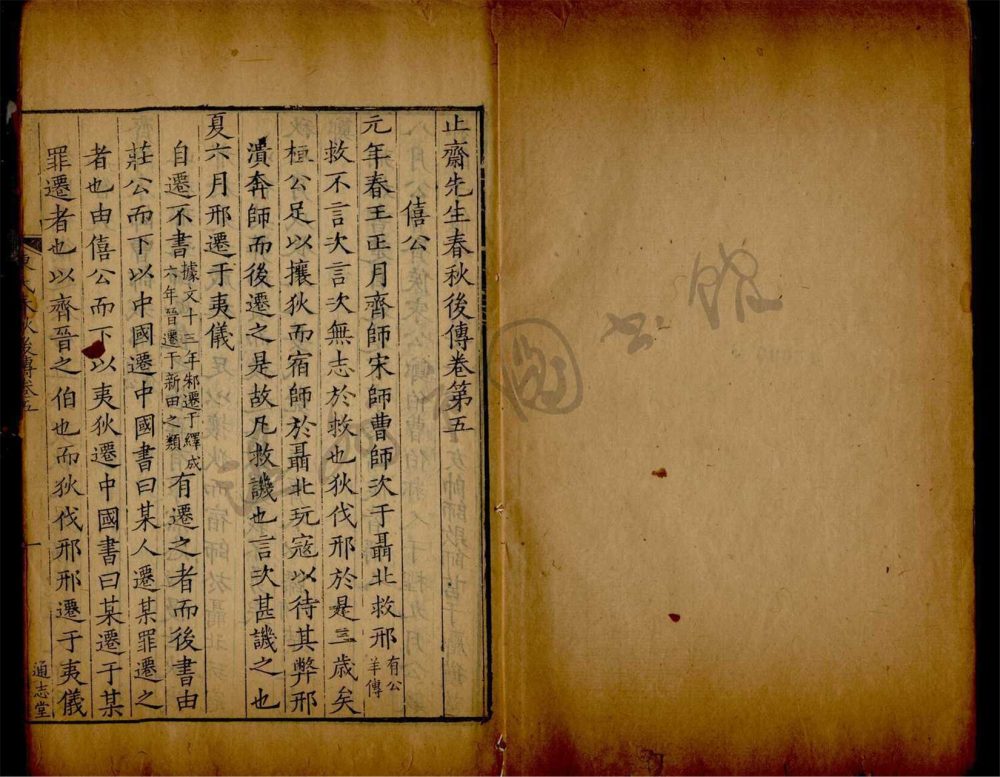 止齋先生春秋後傳卷第五
僖公
元年春王正月齊師宋師曹師次于聶北救邢有公
羊傳
救不言次言次無志於救也狄伐邢於是三歲矣
桓公足以攘狄而宿師於聶北玩寇以待其弊邢
潰奔師而後遷之是故凡救譏也言次甚譏之也
夏六月邢遷于夷儀
自遷不書據文十三年邾遷于繹成
六年晉遷于新田之類有遷之者而後書由
莊公而下以中國遷中國書曰某人遷某罪遷之
者也由僖公而下以夷狄遷中國書曰某遷于某
罪遷者也以齊晉之伯也而狄伐邢邢遷于夷儀
氏春秋後傳卷五
一
通志堂